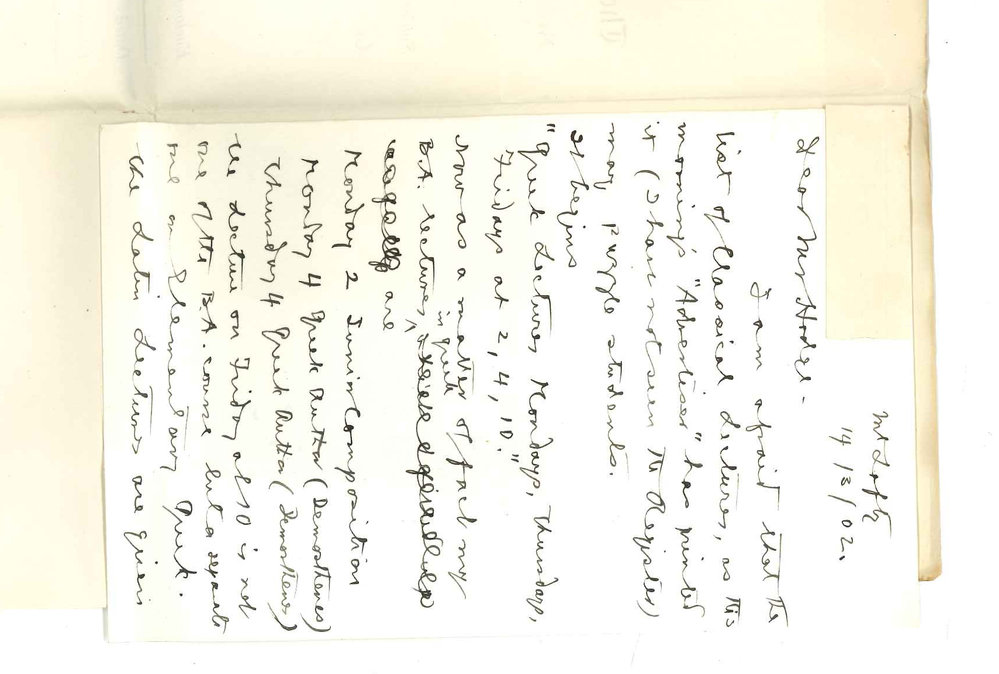 Mt Lofty
14/3/02.
Dear Mr Hodge.
I am afraid that the
list of Classical Lectures, as this
morning's "Advertiser" has printed
it (I have not seen the Register)
may puzzle students.
It begins
"Greek Lectures, Mondays, Thursdays,
Fridays at 2, 4, 10."
Now as a matter of fact my
B.A. lectures, in Greek
are
Monday 2 Senior Composition
Monday 4 Greek Author (Demosthenes)
Thursday 4 Greek Author (Demosthenes)
the Lecture on Friday at 10 is not
one of the B.A. course but a separate
one on Elementary Greek.
the Latin Lectures are given